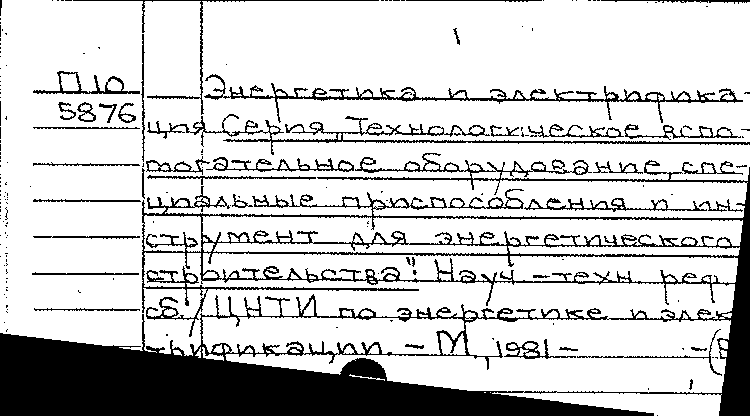 П10
5876
Энергетика и электрифика-
ция Серия „Технологическое вспо-
могательное оборудование, спе-
циальные приспособления и ин-
струмент для энергетического
строительства": Науч -техн реф.
сб / ЦНТИ по энергетике и элек
трификации. - М, 1981 - -(В